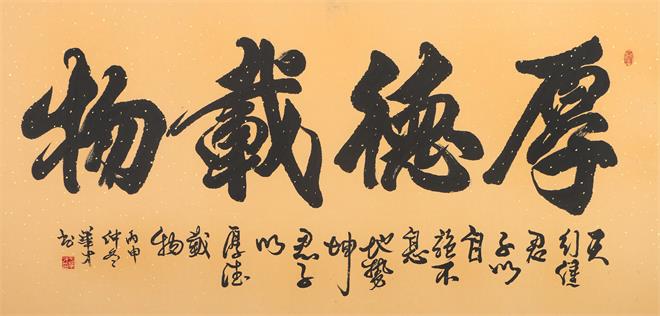 厚德載物
天
行健
君
子以
自
強不
息
地勢
坤
君子
以
厚德
載
物
丙申
仲冬
華才
书